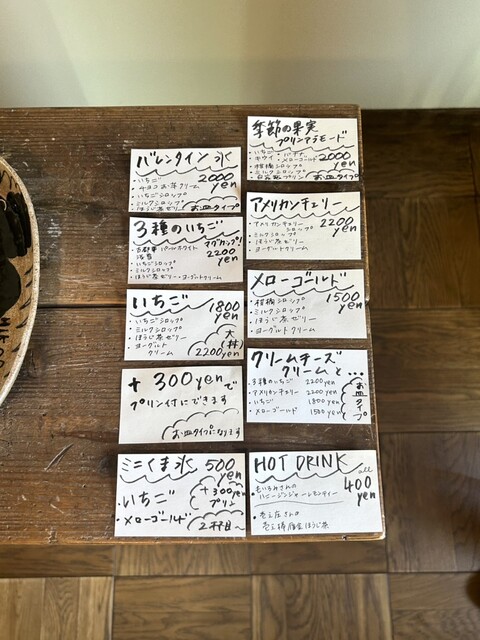 バレンタイン氷
2000
yen
・いちご
・チョコお芋クリーム
・いちごシロップ
・ミルクシロップ
・ほうじ茶ゼリー
お皿タイプ
3種のいちご
マグカップ!
2200
yen
・古都華 パールホワイト
・いちごシロップ
・ミルクシロップ
・ほうじ茶ゼリー・ヨーグルトクリーム
いちご
1800
yen
・いちごシロップ
・ミルクシロップ
・ほうじ茶ゼリー
・ヨーグルト
クリーム
大(丼)
2200yen
+300yenで
プリン付にできます
お皿タイプになります
ミニくま氷 500
yen
・いちご
・メローゴールド
+300yen
プリン
2杯目〜
季節の果実
プリンアラモード
2000
yen
・いちご ・バナナ
・キウイ ・メローゴールド
・柑橘シロップ
・ミルクシロップ
お皿タイプ
アメリカンチェリー
2200
yen
・アメリカンチェリー
シロップ
・ミルクシロップ
・ほうじ茶ゼリー
・ヨーグルトクリーム
メローゴールド
1500
yen
・柑橘シロップ
・ミルクシロップ
・ほうじ茶ゼリー
・ヨーグルトクリーム
クリームチーズ
クリームと...
・3種のいちご 2200yen
・アメリカンチェリー 2200yen
・いちご 1800yen
・メローゴールド 1500yen
お皿タイプ
HOT DRINK
all
400
yen
ハニージンジャーレモンティー